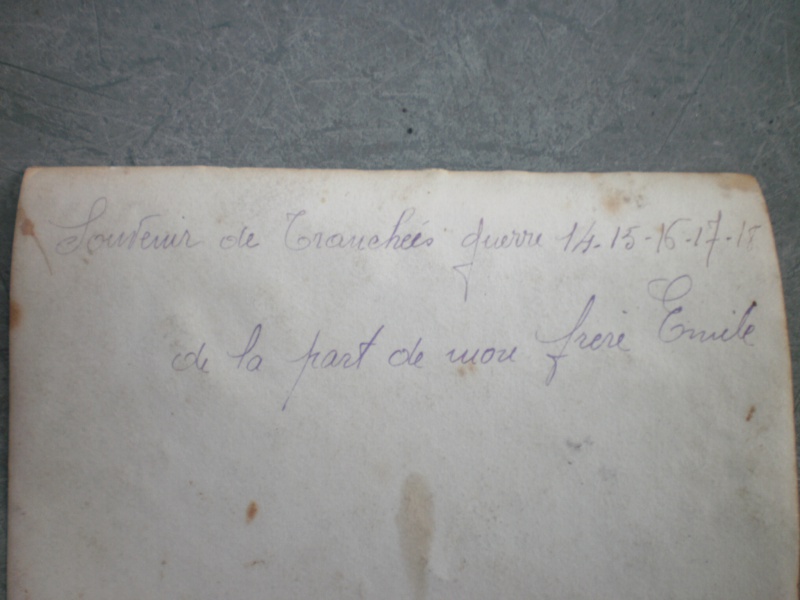 Souvenir de Tranchées guerre 14-15-16-17-18
de la part de mon frere Emile